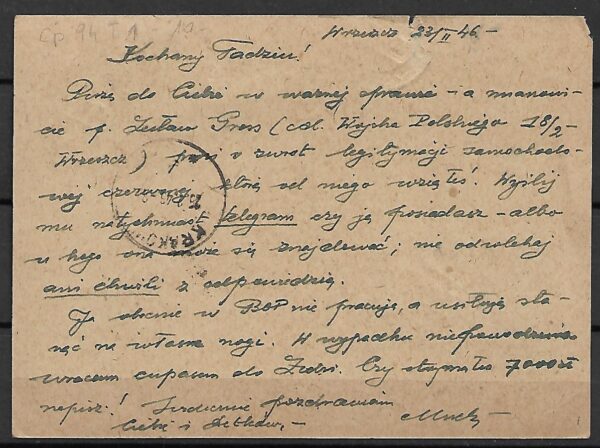 Cp 94 I 1 10
Wrzeszcz 23/II 46 -
Kochany Tadziu!
Piszę do Ciebie w ważnej sprawie - a mianowi-
cie p. Zesław Gross (ul. Wojska Polskiego 18/2 -
Wrzeszcz) prosi o zwrot legitymacji samochodo-
wej czerwonej, którą od niego wziąłeś. Wyślij
mu natychmiast telegram czy ją posiadasz - albo
u kogo ona może się znajdować; nie odwlekaj
ani chwili z odpowiedzią.
Ja obecnie w BOP nie pracuję, a usiłuję sta-
nąć na własne nogi. W wypadku niepowodzenia
wracam cupasem do Łodzi. Czy otrzymałeś 7000 zł
napisz! Serdecznie pozdrawiam
Ciebie i
KRAKÓW